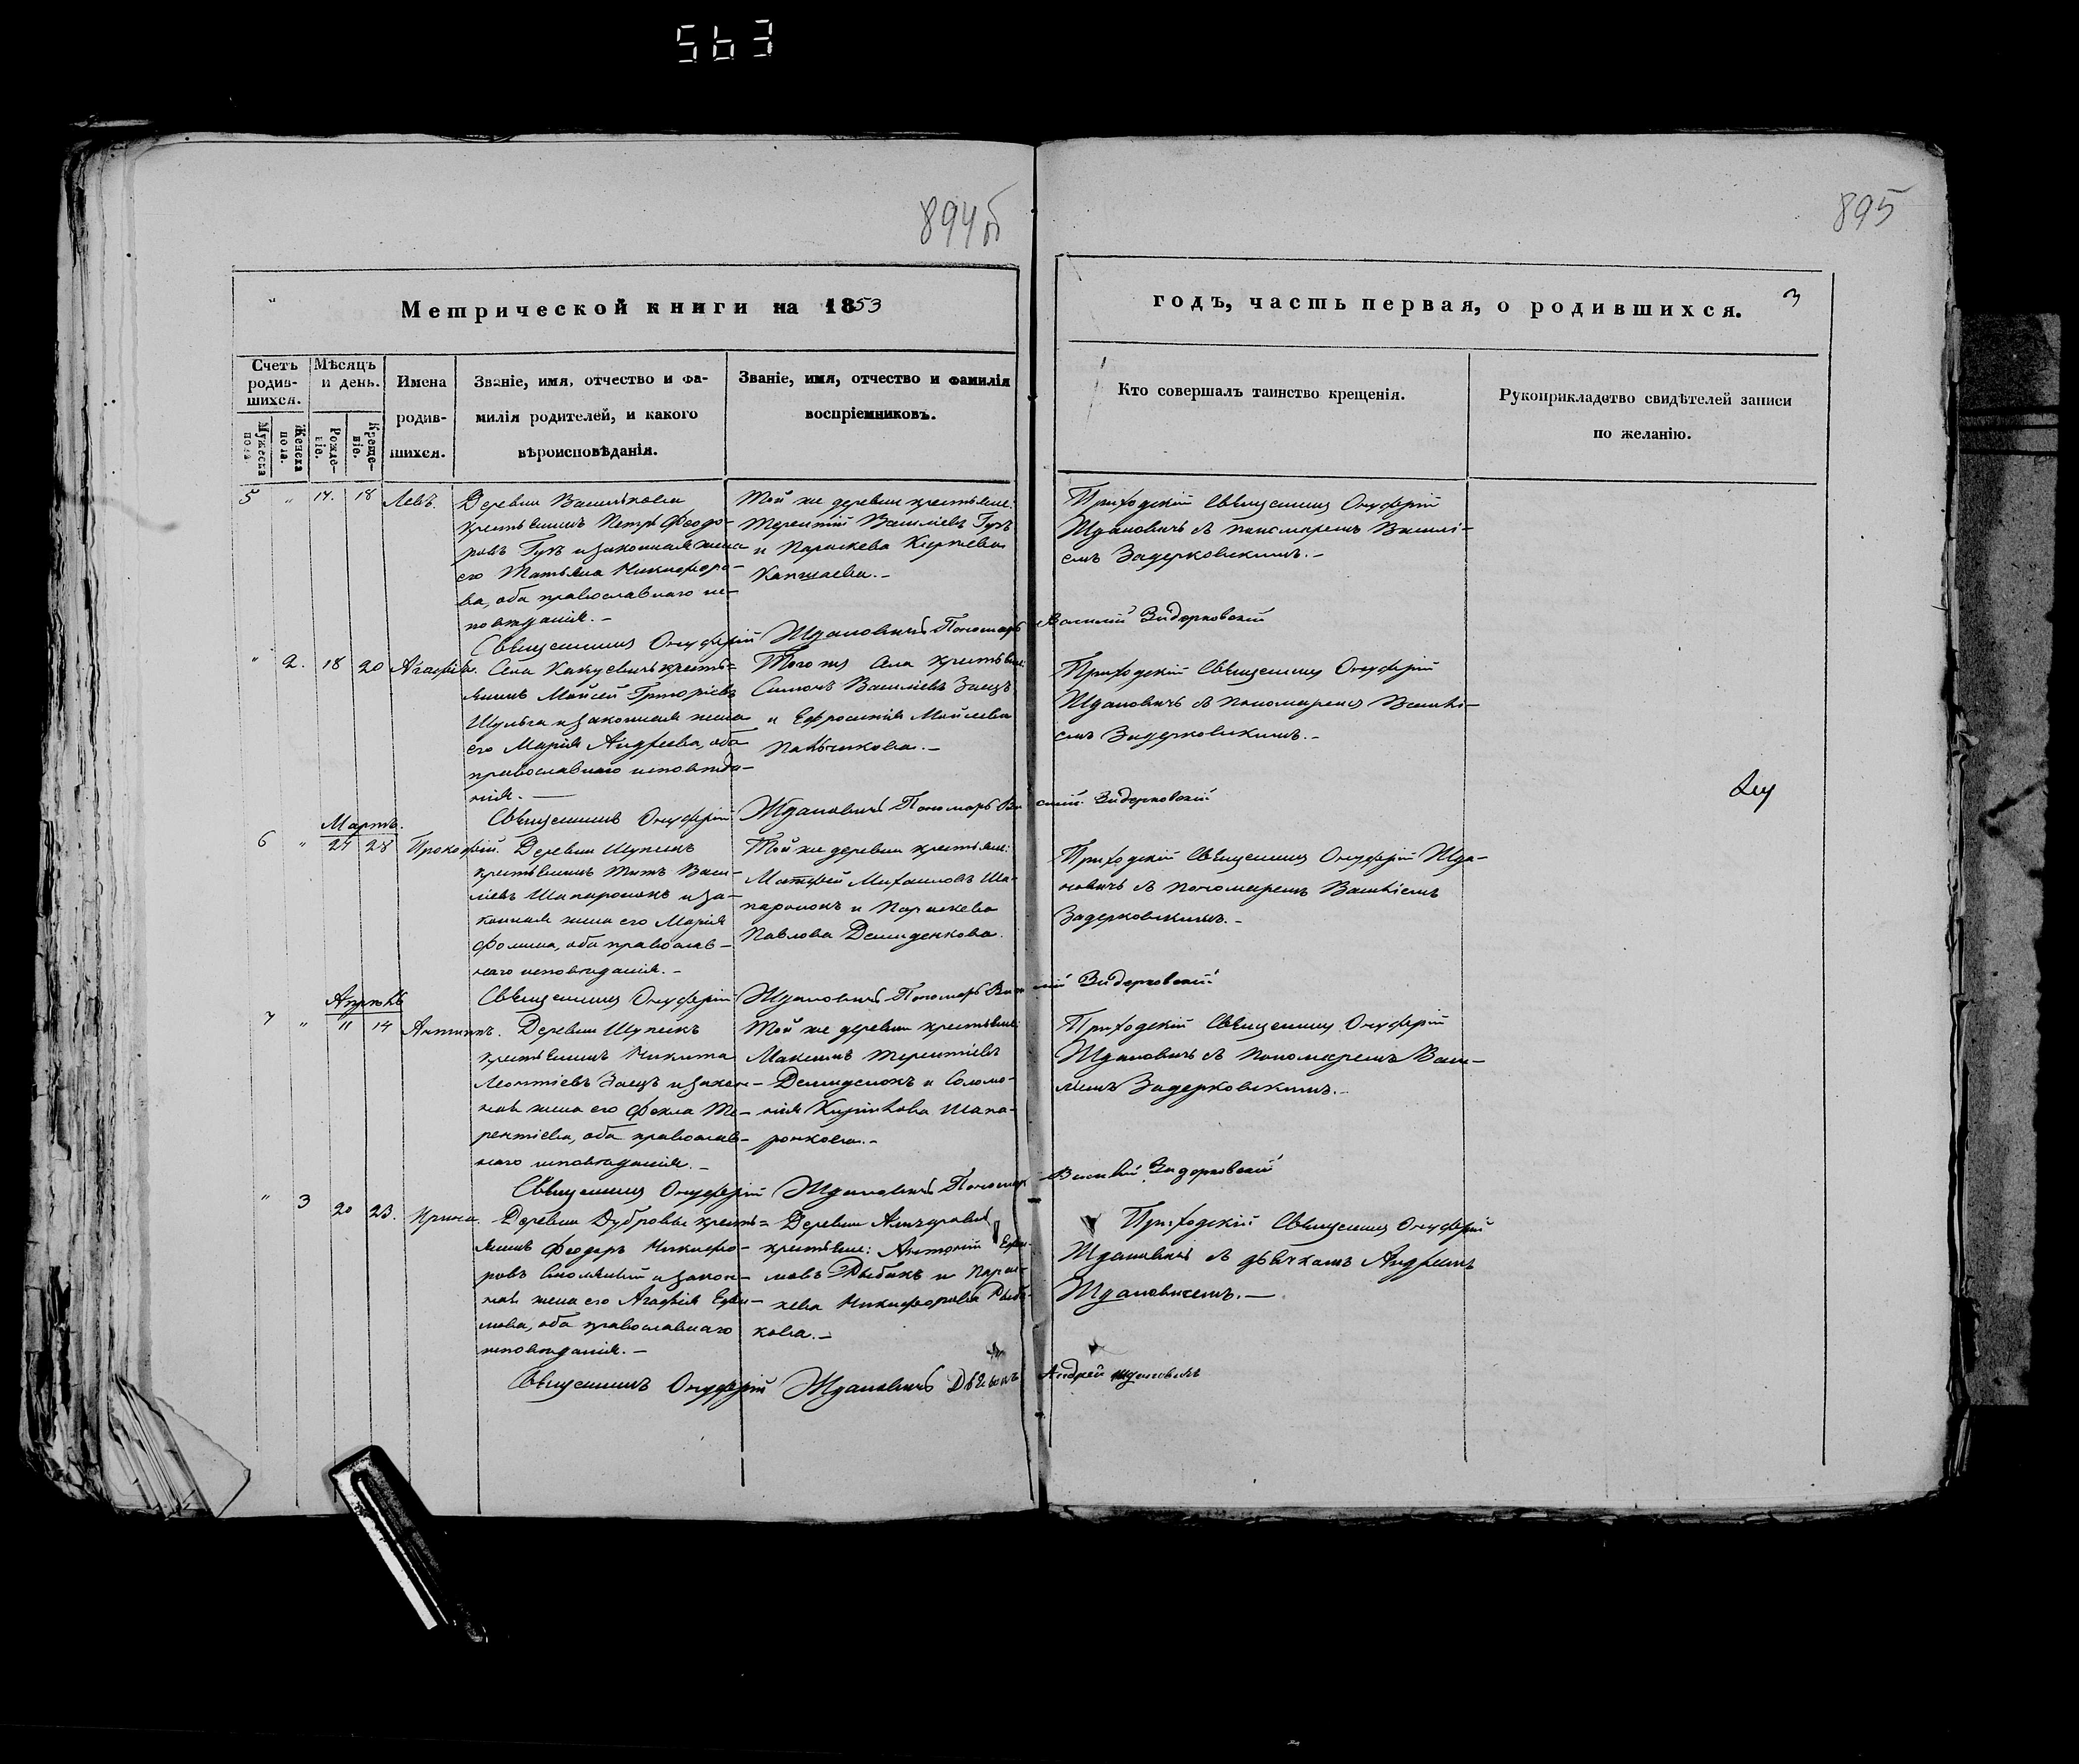 563
894об
895
Метрической книги на 1853
годъ, часть первая, о родившихся.
3
Счетъ родив-шихся.
Мужеска пола.
Женска пола.
Мѣсяцъ и день.
Рожде-ніе.
Креще-ніе.
Имена родив-шихся.
Званіе, имя, отчество и фа-
милія родителей, и какого
вѣроисповѣданія.
Званіе, имя, отчество и фамилія
воспріемниковъ.
Кто совершалъ таинство крещенія.
Рукоприкладство свидѣтелей записи
по желанію.
5 " 17. 18 Левъ.
Деревни Васильковки
крестьянинъ Петръ Феодо-
ровъ Гузъ и законная жена
его Татьяна Никифоро-
ва, оба православнаго ис-
повѣданія.-
Той же деревни крестьяне:
Терентій Васильевъ Гузъ
и Параскева
Приходскій Священникъ Онуфрій
Ждановичъ съ пономаремъ Василі-
емъ Задерковскимъ.-
Священникъ Онуфрій Ждановичъ Пономарь Василій Задерковскій
" 2. 18 20 Агафія.
Села крестья=
нинъ Мойсей Григоріевъ
Шульга и законная жена
его Марія Андреева, оба
православнаго исповѣда-
нія.-
Того же села крестьяне:
Симонъ Василіевъ Заецъ
и Ефросинія Мойсеева
Приходскій Священникъ Онуфрій
Ждановичъ съ пономаремъ Василі-
емъ Задерковскимъ.-
Священникъ Онуфрій Ждановичъ Пономарь Василій Задерковскій
Мартъ.
6 " 24 28 Прокофій.
Деревни Шупикъ
крестьянинъ Титъ Васи-
ліевъ Шапаронокъ и за-
конная жена его Марія
Фомина, оба православ-
наго исповѣданія.-
Той же деревни крестьяне:
Матфей Михаиловъ Ша-
паронокъ и Параскева
Павлова Демиденкова.
Приходскій Священникъ Онуфрій Жда-
новичъ съ пономаремъ Василіемъ
Задерковскимъ.-
Священникъ Онуфрій Ждановичъ Пономарь Василій Задерковскій
Апрель
7 " 11 14 Антипъ.
Деревни Шупикъ
крестьянинъ Никита
Леонтіевъ Заецъ и закон-
ная жена его Фекла Те-
рентіева, оба православ-
наго исповѣданія.-
Той же деревни крестьяне:
Максимъ Терентіевъ
Демиденокъ и Соломо-
нія Кирилова Шапа-
ронкова.-
Приходскій Священникъ Онуфрій
Ждановичъ съ пономаремъ Васи-
ліемъ Задерковскимъ.-
Священникъ Онуфрій Ждановичъ Пономарь Василій Задерковскій
" 3 20 23. Ирина.
Деревни Дубровы крестья=
нинъ Феодоръ Никифо-
ровъ и закон-
ная жена его Агафія Ефи-
мова, оба православнаго
исповѣданія.-
Деревни
крестьяне: Антоній Ефи-
мовъ Рыбакъ и Парас-
кева Никифорова Рыба-
кова.-
Приходскій Священникъ Онуфрій
Ждановичъ съ дьячкомъ Андреемъ
Ждановичемъ.-
Священникъ Онуфрій Ждановичъ Дьячокъ Андрей Ждановичъ